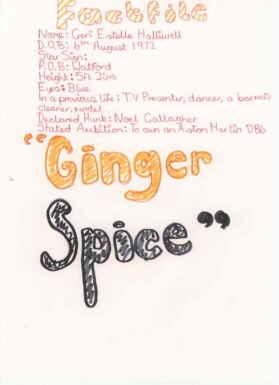 Factfile
Name: Geri Estelle Halliwell
D.O.B: 6th August 1972
Star Sign:
P.O.B: Watford
Height: 5ft 2ins
Eyes: Blue
In a previous life: TV Presenter, dancer, a barnets
cleaner, model
Declared Hunk: Noel Gallagher
Stated Ambition: To own an Aston Martin DB6
"Ginger
Spice"